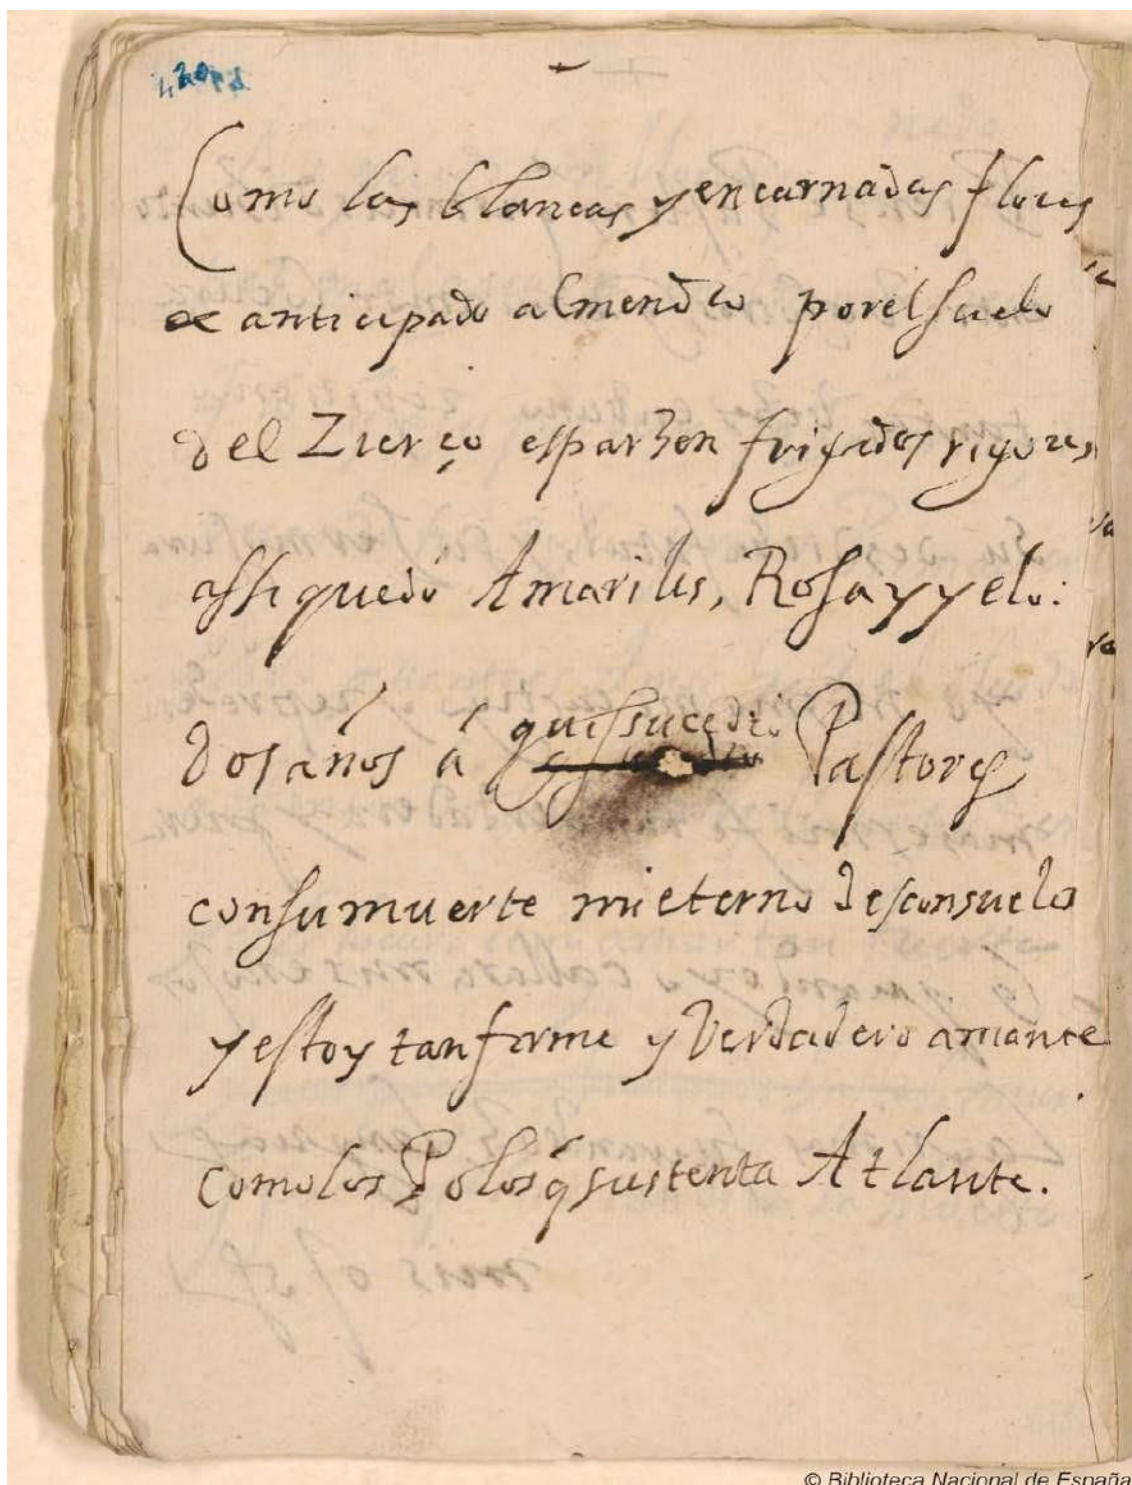 Como las blancas y encarnadas flores
de anticipado almendro por el suelo
del Zierço esparzen frigidos rigores,
assi quedó Amarilis, Rosa y yelo:
dos años á quissucedio Pastores
con su muerte mi eterno desconsuelo
y estoy tan firme y Verdadero amante
como los Polos q̃ sustenta Atlante.
© Biblioteca Nacional de España